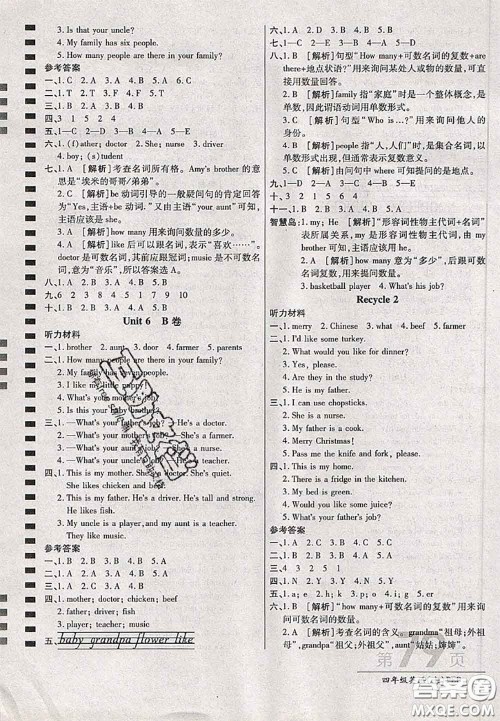 3. Is that your uncle?
4. My family has six people.
5. How many people are there in your family?
参考答案
一、1. C 2. A 3. A 4. B 5. A 6. C
二、1. T 2. F 3. T 4. F 5. T
三、1. B 2. A 3. A 4. B 5. B
四、3 5 1 2 4
五、1. C 2. D 3. E 4. B 5. A
六、1. (f)ather; doctor 2. She; nurse 3. driver
4. boy; (s)tudent
七、1. A [解析]考查名词所有格。Amy's brother 的意
思是“埃米的哥哥/弟弟”。
2. C [解析]be 动词引导的一般疑问句的肯定回答
为“Yes, 主语+be 动词.”又由主语“your aunt”可
知,主语应该是 she。
3. B [解析]how many 用来询问数量的多少。
4. A [解析]like 后可以跟名词,表示“喜欢……”。
doctor 是可数名词,其前面应跟冠词;music 是不可
数名词,意为“音乐”,所以答案选 A。
八、1. B 2. A 3. A 4. B 5. A
九、6 2 3 4 5 1 8 7 9 10
十、1. B 2. A 3. B 4. A 5. B
Unit 6 B 卷
听力材料
一、1. brother 2. aunt 3. door 4. farmer 5. parents
二、1. How many people are there in your family?
2. My family has people.
3. I like my little puppy!
4. What's your mother's job?
5. Is this your brother?
三、1. —What's your father? —He's a doctor.
2. —What's your
3. —What's your father's job? —He's a driver.
四、1. This is my mother. She is a nurse. She's quiet.
She likes chicken and beef.
2. This is my father. He's a driver. He's tall and strong.
He likes fish.
3. My uncle is a player, and my aunt is a teacher.
They like music.
参考答案
一、1. A 2. B 3. B 4. A 5. B
二、1. B 2. A 3. B 4. B 5. A
三、1. B 2. A 3. A
四、1. mother; doctor; chicken; beef
2. father; driver; fish
3. player; teacher; music
五、baby grandpa flower like
六、1. B 2. A 3. A 4. B 5. B
七、1—C 2—D 3—A 4—E 5—B
八、1. A [解析]句型“How many+可数名词的复数+are
there+地点状语?”用来询问某处人或物的数量,
数量回答。
2. B [解析]family 指“家庭”时是一个整体概念,是
单数,所以谓语动词用单数形式。
3. C [解析]句型“Who is...?”用来询问他人的
身份。
4. B [解析]people 意为“人们”时,是集合名词,以
单数形式出现,本句中表示复数意义。
5. B [解析]由问句中 where 可知提问的是地点。
九、1—D 2—A 3—E 4—B 5—C
十、3 4 1 2 5
十一、1. A 2. B 3. B 4. A 5. A
智慧岛:1. my; He [解析]“形容词性物主代词+名词”
表所属关系,my 是形容词性物主代词,由 my
brother 可知,主语应用 he。
2. how many [解析]how many 意为“多少”,后跟可
数名词复数,用来提问数量。
3. basketball player 4. What's his job?
Recycle 2
听力材料
一、1. merry 2. Chinese 3. what 4. bowl 5. farmer
二、1. I'd like some turkey.
2. What would you like for dinner?
3. Yes, please.
4. Are they in the study?
5. He is my father.
三、1. I can use chopsticks.
2. She is a nurse.
3. My father is a cook.
4. Merry Christmas!
5. Pass me the knife and fork, please.
四、1. This is my home.
2. There is a fridge in the kitchen.
3. My bed is green.
4. What would you like?
5. What's your father's job?
参考答案
一、1. A 2. C 3. B 4. B 5. A
二、2 5 1 3 4
三、1. B 2. A 3. B 4. A 5. B
四、1. A 2. B 3. B 4. A 5. B
五、1. B 2. C 3. D 4. A 5. C
六、1. B [解析]“how many+可数名词的复数”用来询问
可数名词的数量。
2. B [解析]“how many+可数名词的复数”用来询问
可数名词的数量。
3. A [解析]考查名词的含义,grandma“祖母;外祖
母”,grandpa“祖父;外祖父”,aunt“姑姑;婶婶”。
第79页